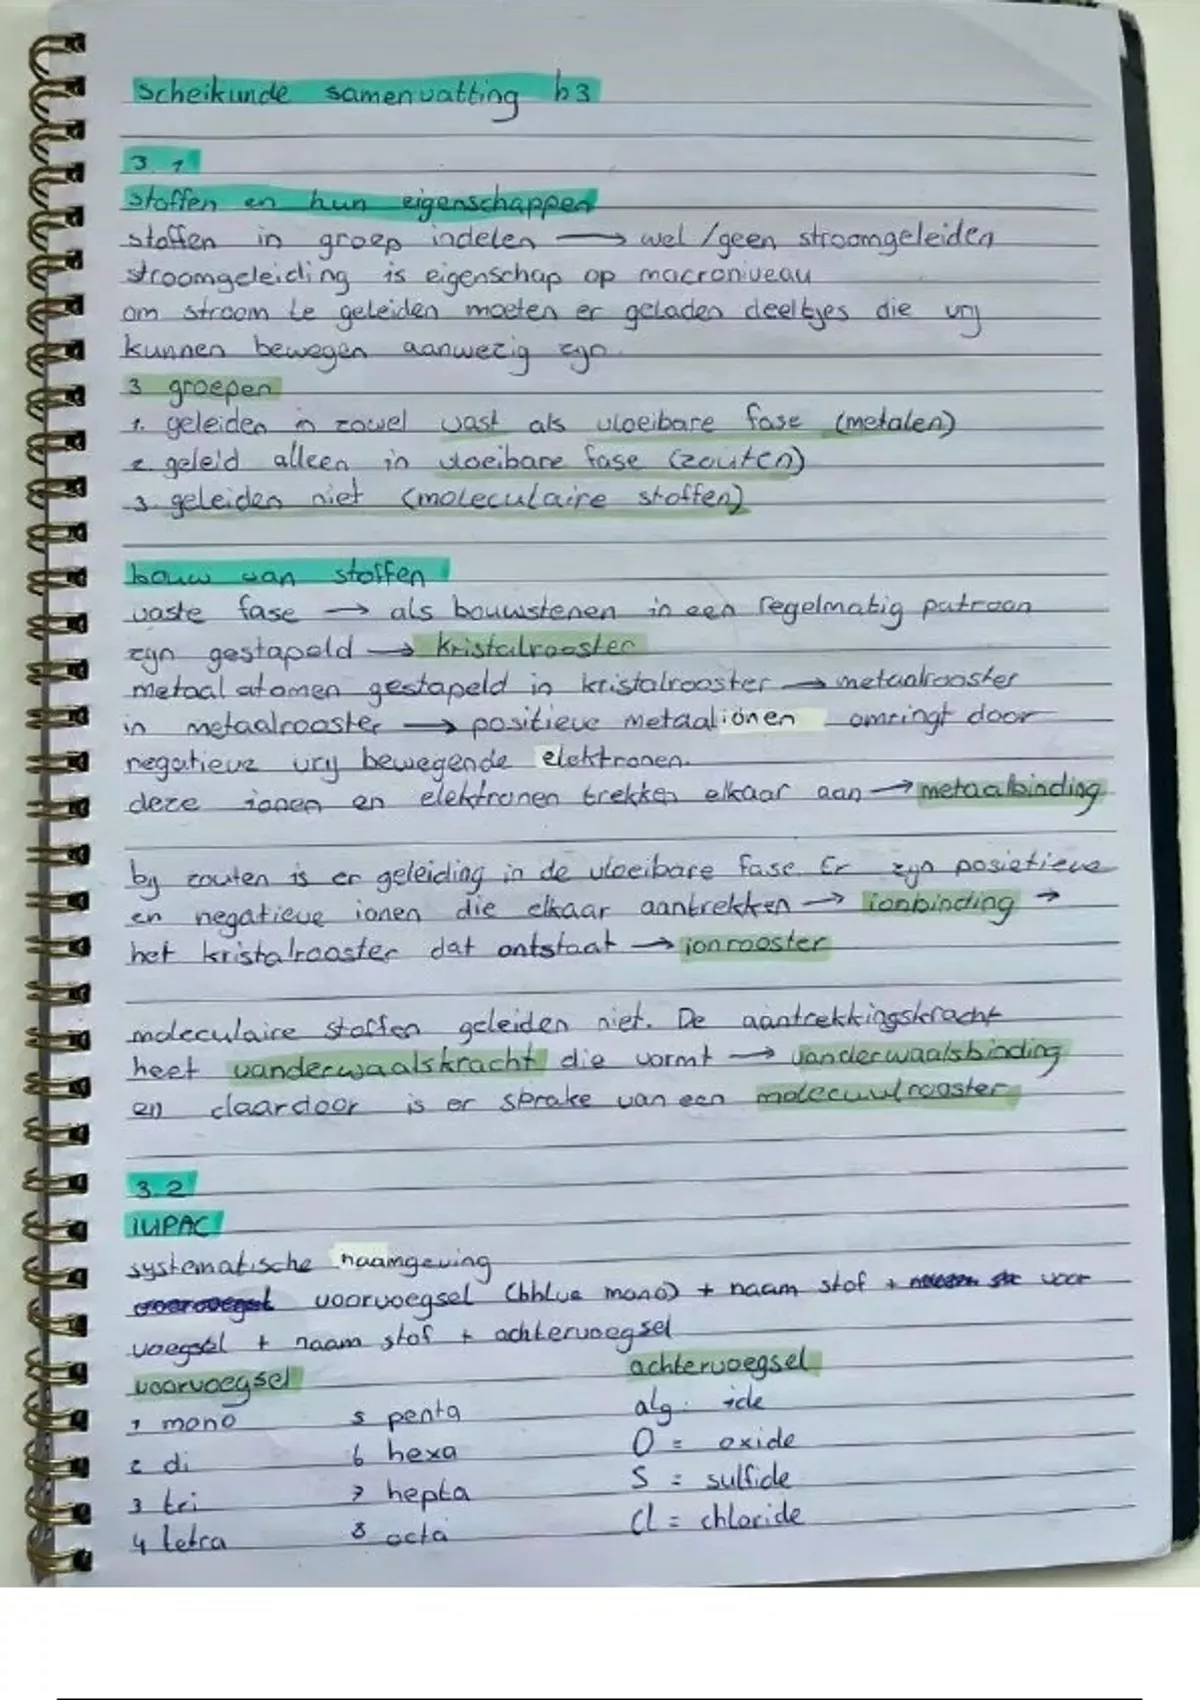 scheikunde samenvatting h3
3.1
stoffen en hun eigenschappen
stoffen in groep indelen → wel/geen stroomgeleiden
stroomgeleiding is eigenschap op macroniveau
om stroom te geleiden moeten er geladen deeltjes die vrij
kunnen bewegen aanwezig zijn.
3 groepen
1. geleiden in zowel vast als vloeibare fase (metalen)
2. geleid alleen in vloeibare fase (zouten)
3. geleiden niet (moleculaire stoffen)
bouw van stoffen
vaste fase → als bouwstenen in een regelmatig patroon
zijn gestapeld → kristalrooster
metaal atomen gestapeld in kristalrooster → metaalrooster
in metaalrooster → positieve metaalionen omringt door
negatieve vrij bewegende elektronen.
deze ionen en elektronen trekken elkaar aan → metaalbinding
bij zouten is er geleiding in de vloeibare fase. Er zijn posietieve
en negatieve ionen die elkaar aantrekken → ionbinding →
het kristalrooster dat ontstaat → ionrooster
moleculaire stoffen geleiden niet. De aantrekkingskracht
heet vanderwaalskracht die vormt → vanderwaalsbinding
en daardoor is er sprake van een molecuulrooster
3.2
IUPAC
systematische naamgeving
voorvoegsel (bhlve mono) + naam stof + voor
voegsel + naam stof + achtervoegsel
voorvoegsel achtervoegsel
1 mono 5 penta alg: ide
2 di 6 hexa O = oxide
3 tri 7 hepta S = sulfide
4 tetra 8 octa Cl = chloride